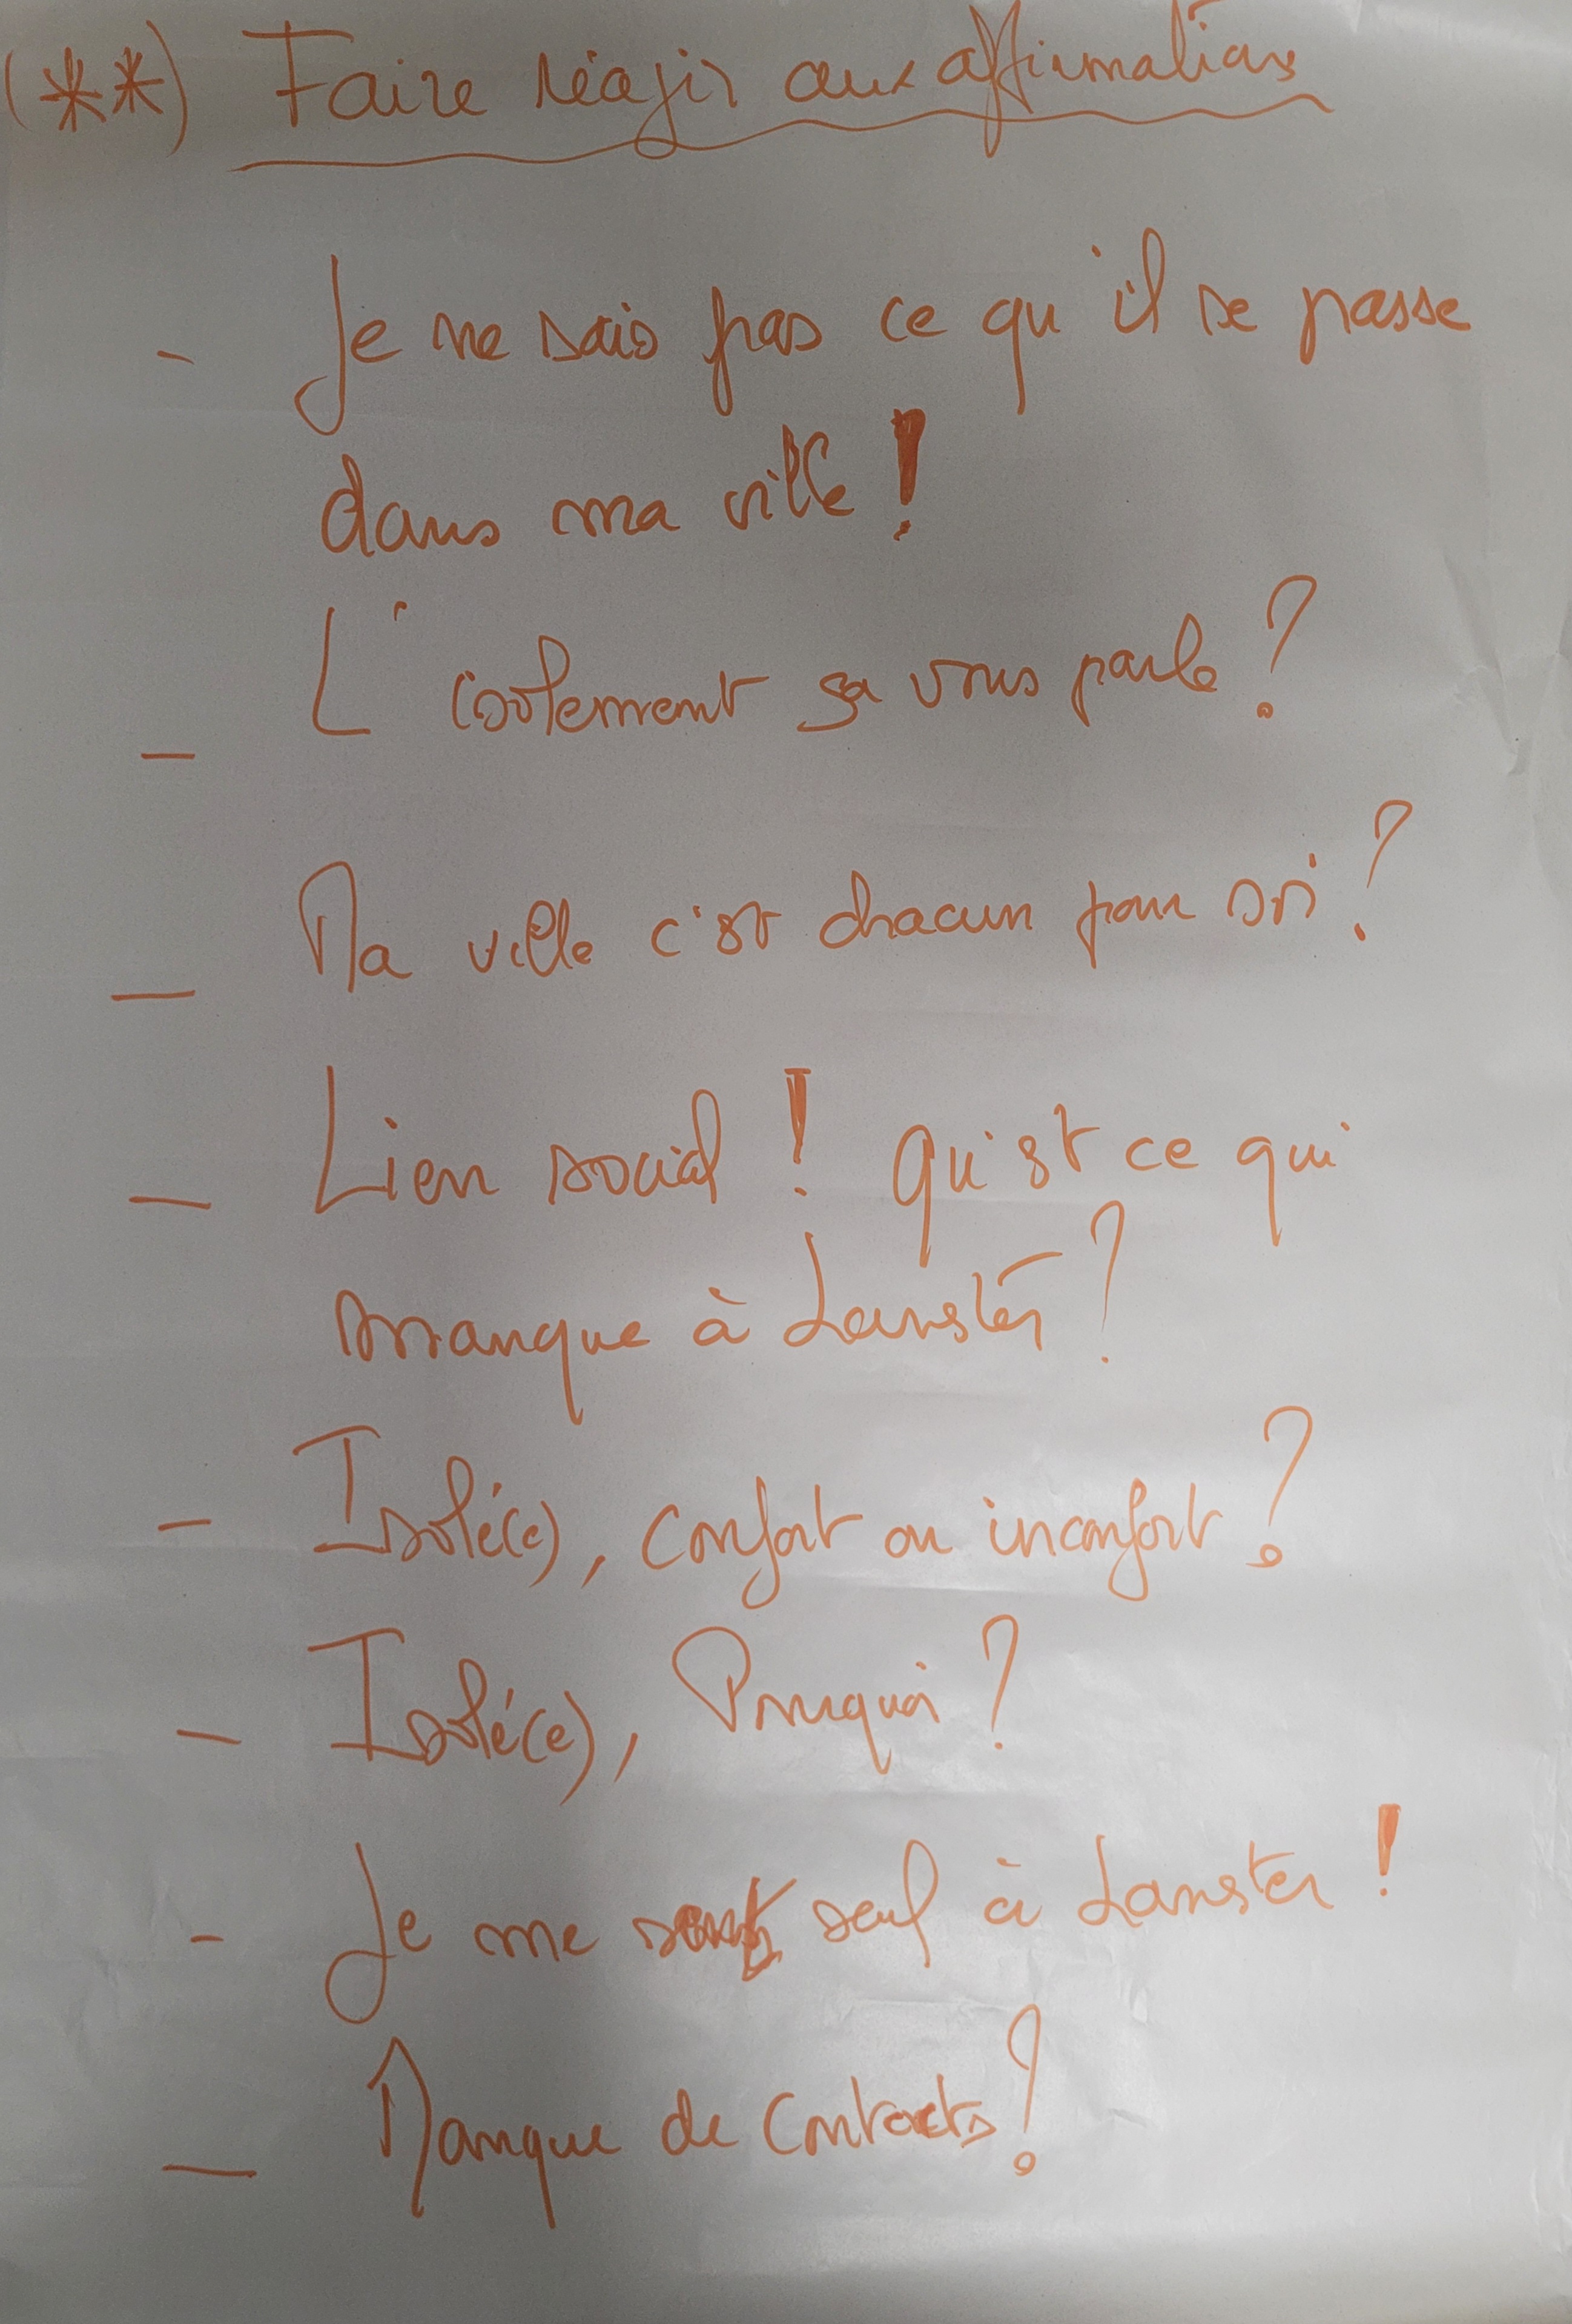 (**) Faire réagir aux affirmations
- Je ne sais pas ce qu'il se passe
dans ma ville !
- L'isolement sa vous parle ?
- Ma ville c'est chacun pour soi ?
- Lien social ! Qu'est ce qui
manque à Lanester ?
- Isolé(e), confort ou inconfort ?
- Isolé(e), Pourquoi ?
- Je me sens seul à Lanester !
- Manque de contacts ?